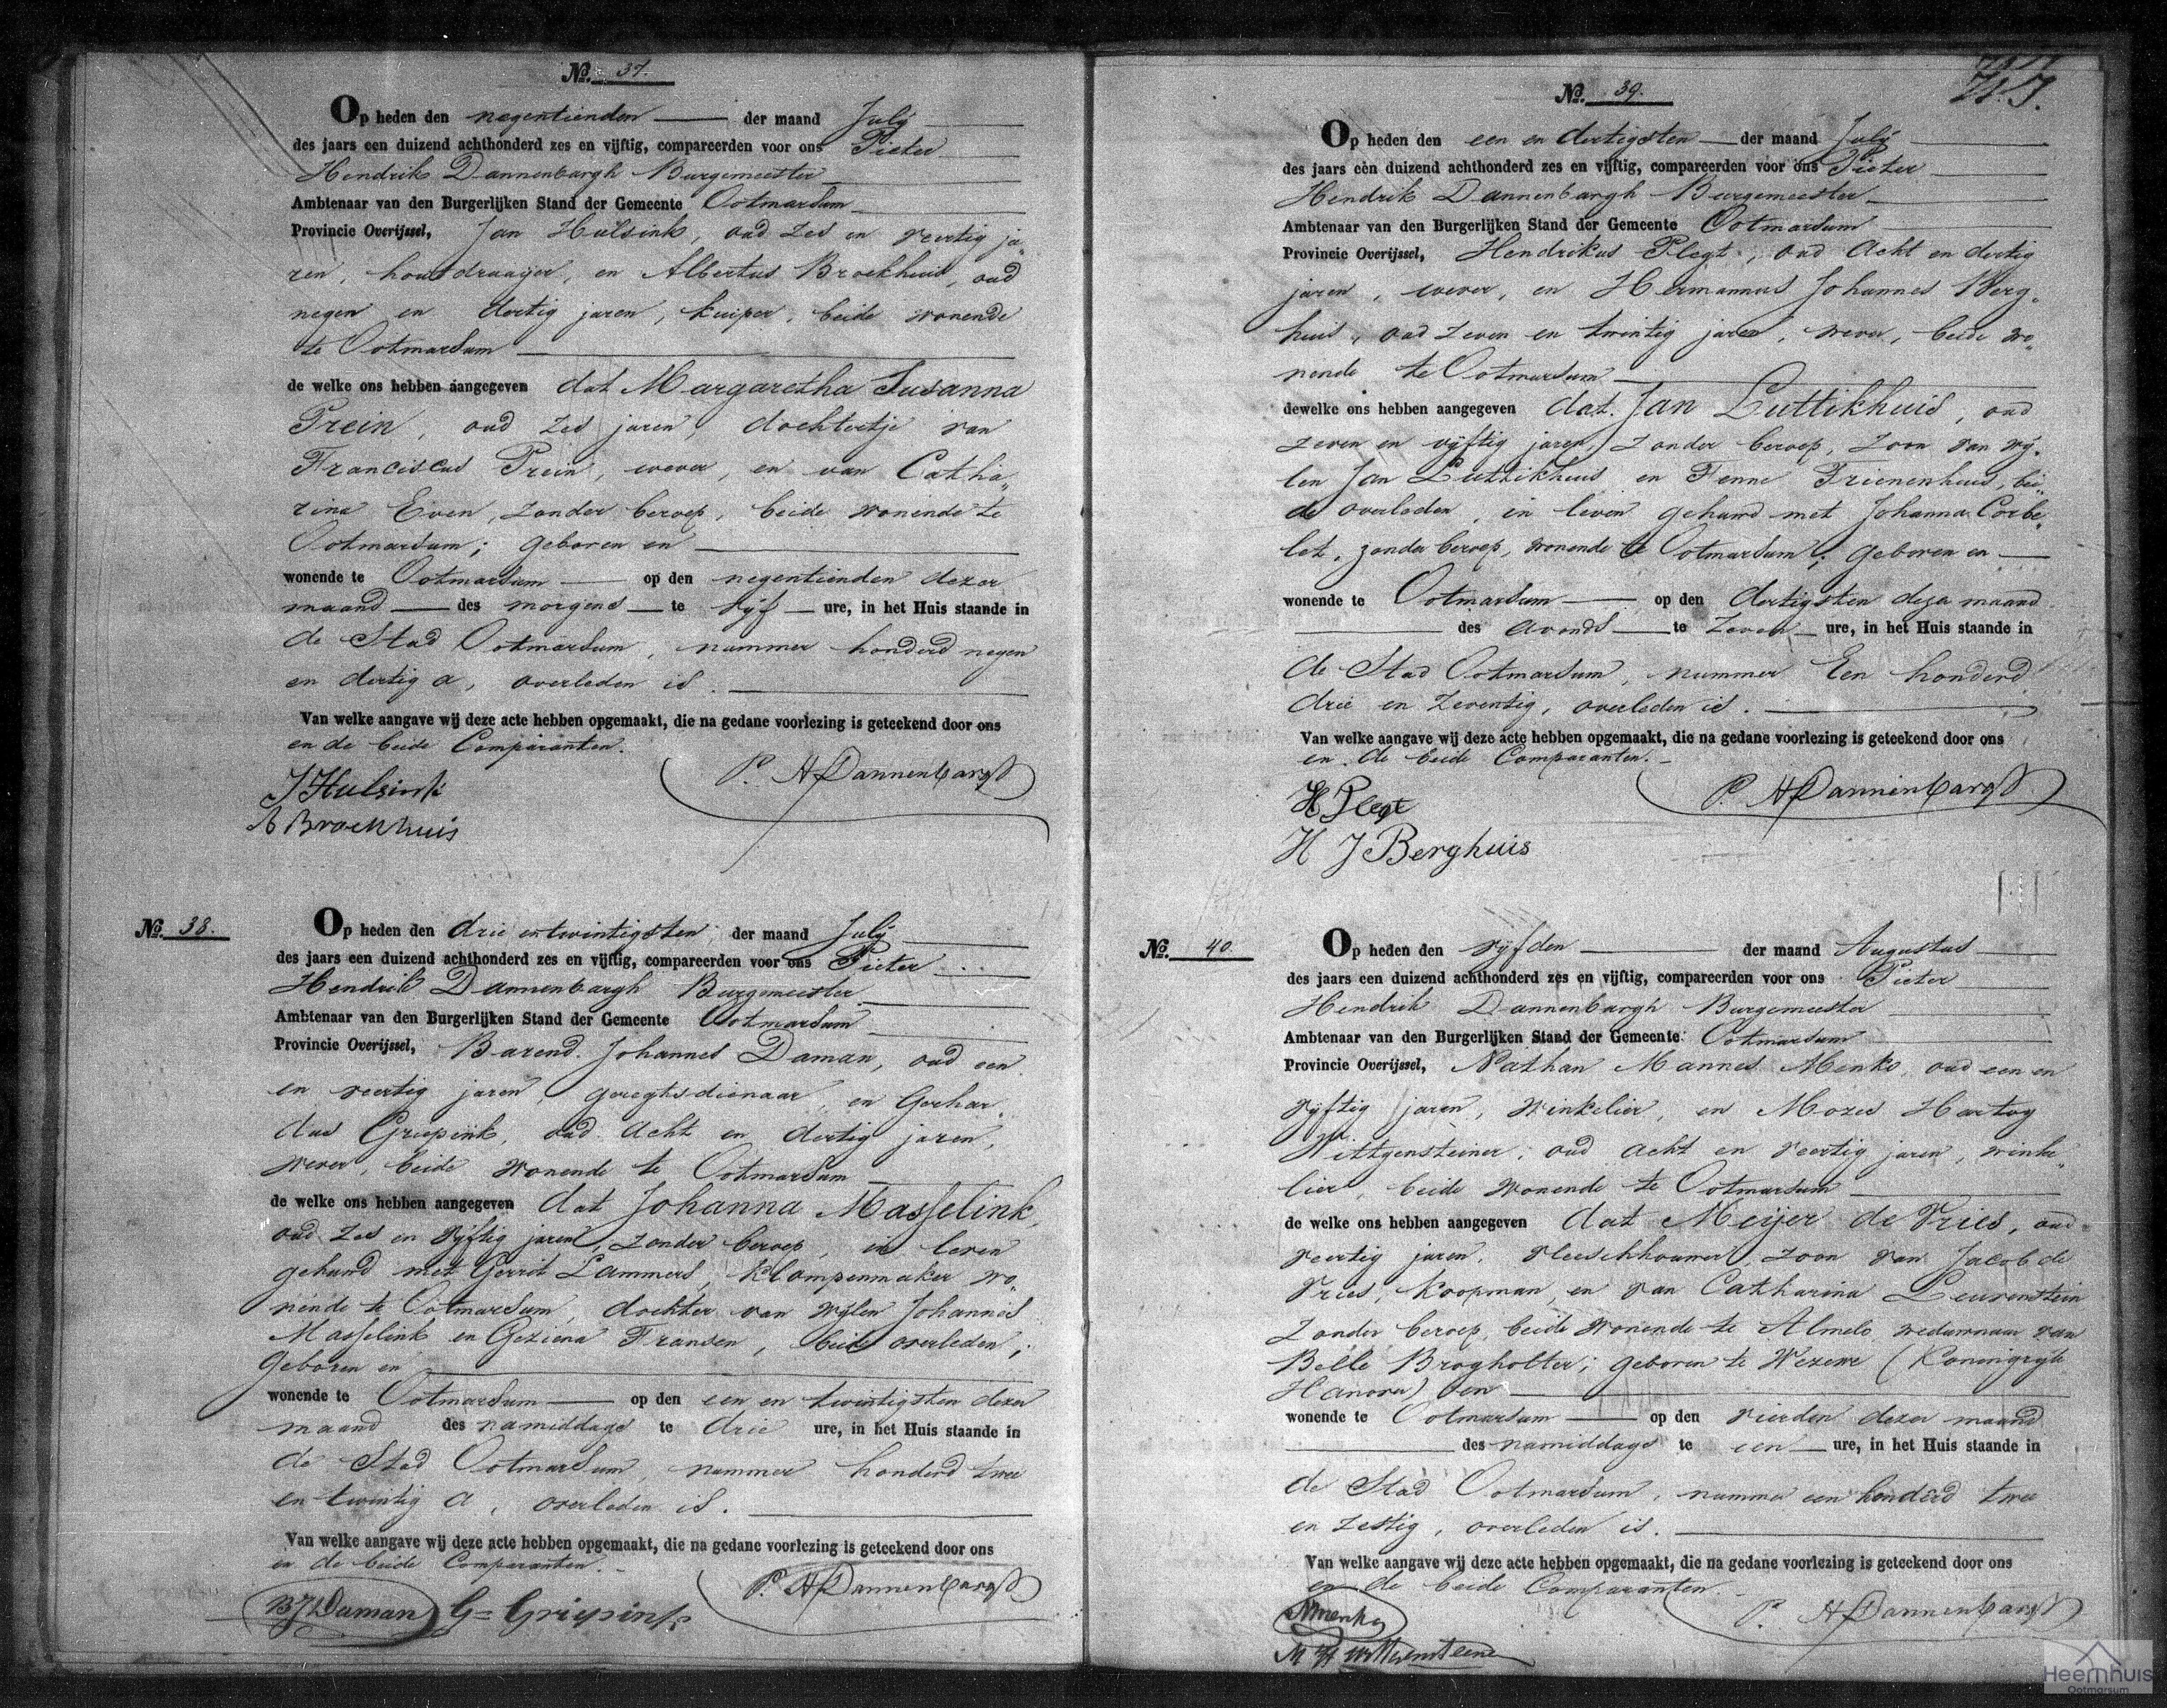 No. 37.
Op heden den negentienden der maand July
des jaars een duizend achthonderd zes en vijftig, compareerden voor ons Pieter
Hendrik Dannenbargh Burgemeester
Ambtenaar van den Burgerlijken Stand der Gemeente Ootmarsum
Provincie Overijssel, Jan Hulsink, oud zes en veertig ja„
ren, houtdraaijer, en Albertus Broekhuis, oud
negen en dertig jaren, kuiper, beide wonende
te Ootmarsum
de welke ons hebben aangegeven dat Margaretha Susanna
Prein, oud zes jaren, dochtertje van
Franciscus Prein, wever, en van Catha„
rina Even, zonder beroep, beide wonende te
Ootmarsum; geboren en
wonende te Ootmarsum op den negentienden dezer
maand des morgens te vijf ure, in het Huis staande in
de Stad Ootmarsum, nummer honderd negen
en dertig a, overleden is.
Van welke aangave wij deze acte hebben opgemaakt, die na gedane voorlezing is geteekend door ons
en de beide Comparanten.
P. H Dannenbargh
J Hulsink
A Broekhuis
No. 38.
Op heden den drie en twintigsten der maand July
des jaars een duizend achthonderd zes en vijftig, compareerden voor ons Pieter
Hendrik Dannenbargh Burgemeester
Ambtenaar van den Burgerlijken Stand der Gemeente Ootmarsum
Provincie Overijssel, Barend Johannes Daman, oud een
en veertig jaren, gereghsdienaar, en Gerhar„
dus Griepink, oud acht en dertig jaren,
wever, beide wonende te Ootmarsum
de welke ons hebben aangegeven dat Johanna Masselink,
oud zes en vijftig jaren, zonder beroep, in leven
gehuwd met Gerrit Lammers, klompenmaker wo„
nende te Ootmarsum, dochter van wijlen Johannes
Masselink en Geziena Fransen, beide overleden;
geboren en
wonende te Ootmarsum op den een en twintigsten dezer
maand des namiddags te drie ure, in het Huis staande in
de Stad Ootmarsum, nummer honderd twee
en twintig a, overleden is.
Van welke aangave wij deze acte hebben opgemaakt, die na gedane voorlezing is geteekend door ons
en de beide Comparanten.
P. H Dannenbargh
BJ Daman G= Griepink
No. 39.
Op heden den een en dertigsten der maand July
des jaars een duizend achthonderd zes en vijftig, compareerden voor ons Pieter
Hendrik Dannenbargh Burgemeester
Ambtenaar van den Burgerlijken Stand der Gemeente Ootmarsum
Provincie Overijssel, Hendrikus Plegt, oud acht en dertig
jaren, wever, en Hermannus Johannes Berg„
huis, oud zeven en twintig jaren, wever, beide wo„
nende te Ootmarsum
dewelke ons hebben aangegeven dat Jan Luttikhuis, oud
zeven en vijftig jaren, zonder beroep, zoon van wij„
len Jan Luttikhuis en Fenne Frienenhuis, bei„
de overleden, in leven gehuwd met Johanna Corbe„
let, zonder beroep, wonende te Ootmarsum; geboren en
wonende te Ootmarsum op den dertigsten dezer maand
des avonds te zeven ure, in het Huis staande in
de Stad Ootmarsum, nummer Een honderd
drie en zeventig, overleden is.
Van welke aangave wij deze acte hebben opgemaakt, die na gedane voorlezing is geteekend door ons
en de beide Comparanten.
P. H Dannenbargh
H Plegt
H J Berghuis
No. 40
Op heden den vijfden der maand Augustus
des jaars een duizend achthonderd zes en vijftig, compareerden voor ons Pieter
Hendrik Dannenbargh Burgemeester
Ambtenaar van den Burgerlijken Stand der Gemeente Ootmarsum
Provincie Overijssel, Nathan Mannes Menko, oud een en
vijftig jaren, winkelier, en Mozes Hartog
Wittgensteiner, oud acht en veertig jaren, winke„
lier, beide wonende te Ootmarsum
de welke ons hebben aangegeven dat Meijer de Vries, oud
veertig jaren, vleeschhouwer, zoon van Jacob de
Vries, koopman, en van Catharina Leuvenstein
zonder beroep, beide wonende te Almelo, weduwnaar van
Belle Brogholter; geboren te Wezewe (Koningrijk
Hanover) en
wonende te Ootmarsum op den vierden dezer maand
des namiddags te een ure, in het Huis staande in
de Stad Ootmarsum, nummer een honderd twee
en zestig, overleden is.
Van welke aangave wij deze acte hebben opgemaakt, die na gedane voorlezing is geteekend door ons
en de beide Comparanten.
P. H Dannenbargh
NMenko
M H
Heemhuis
Ootmarsum